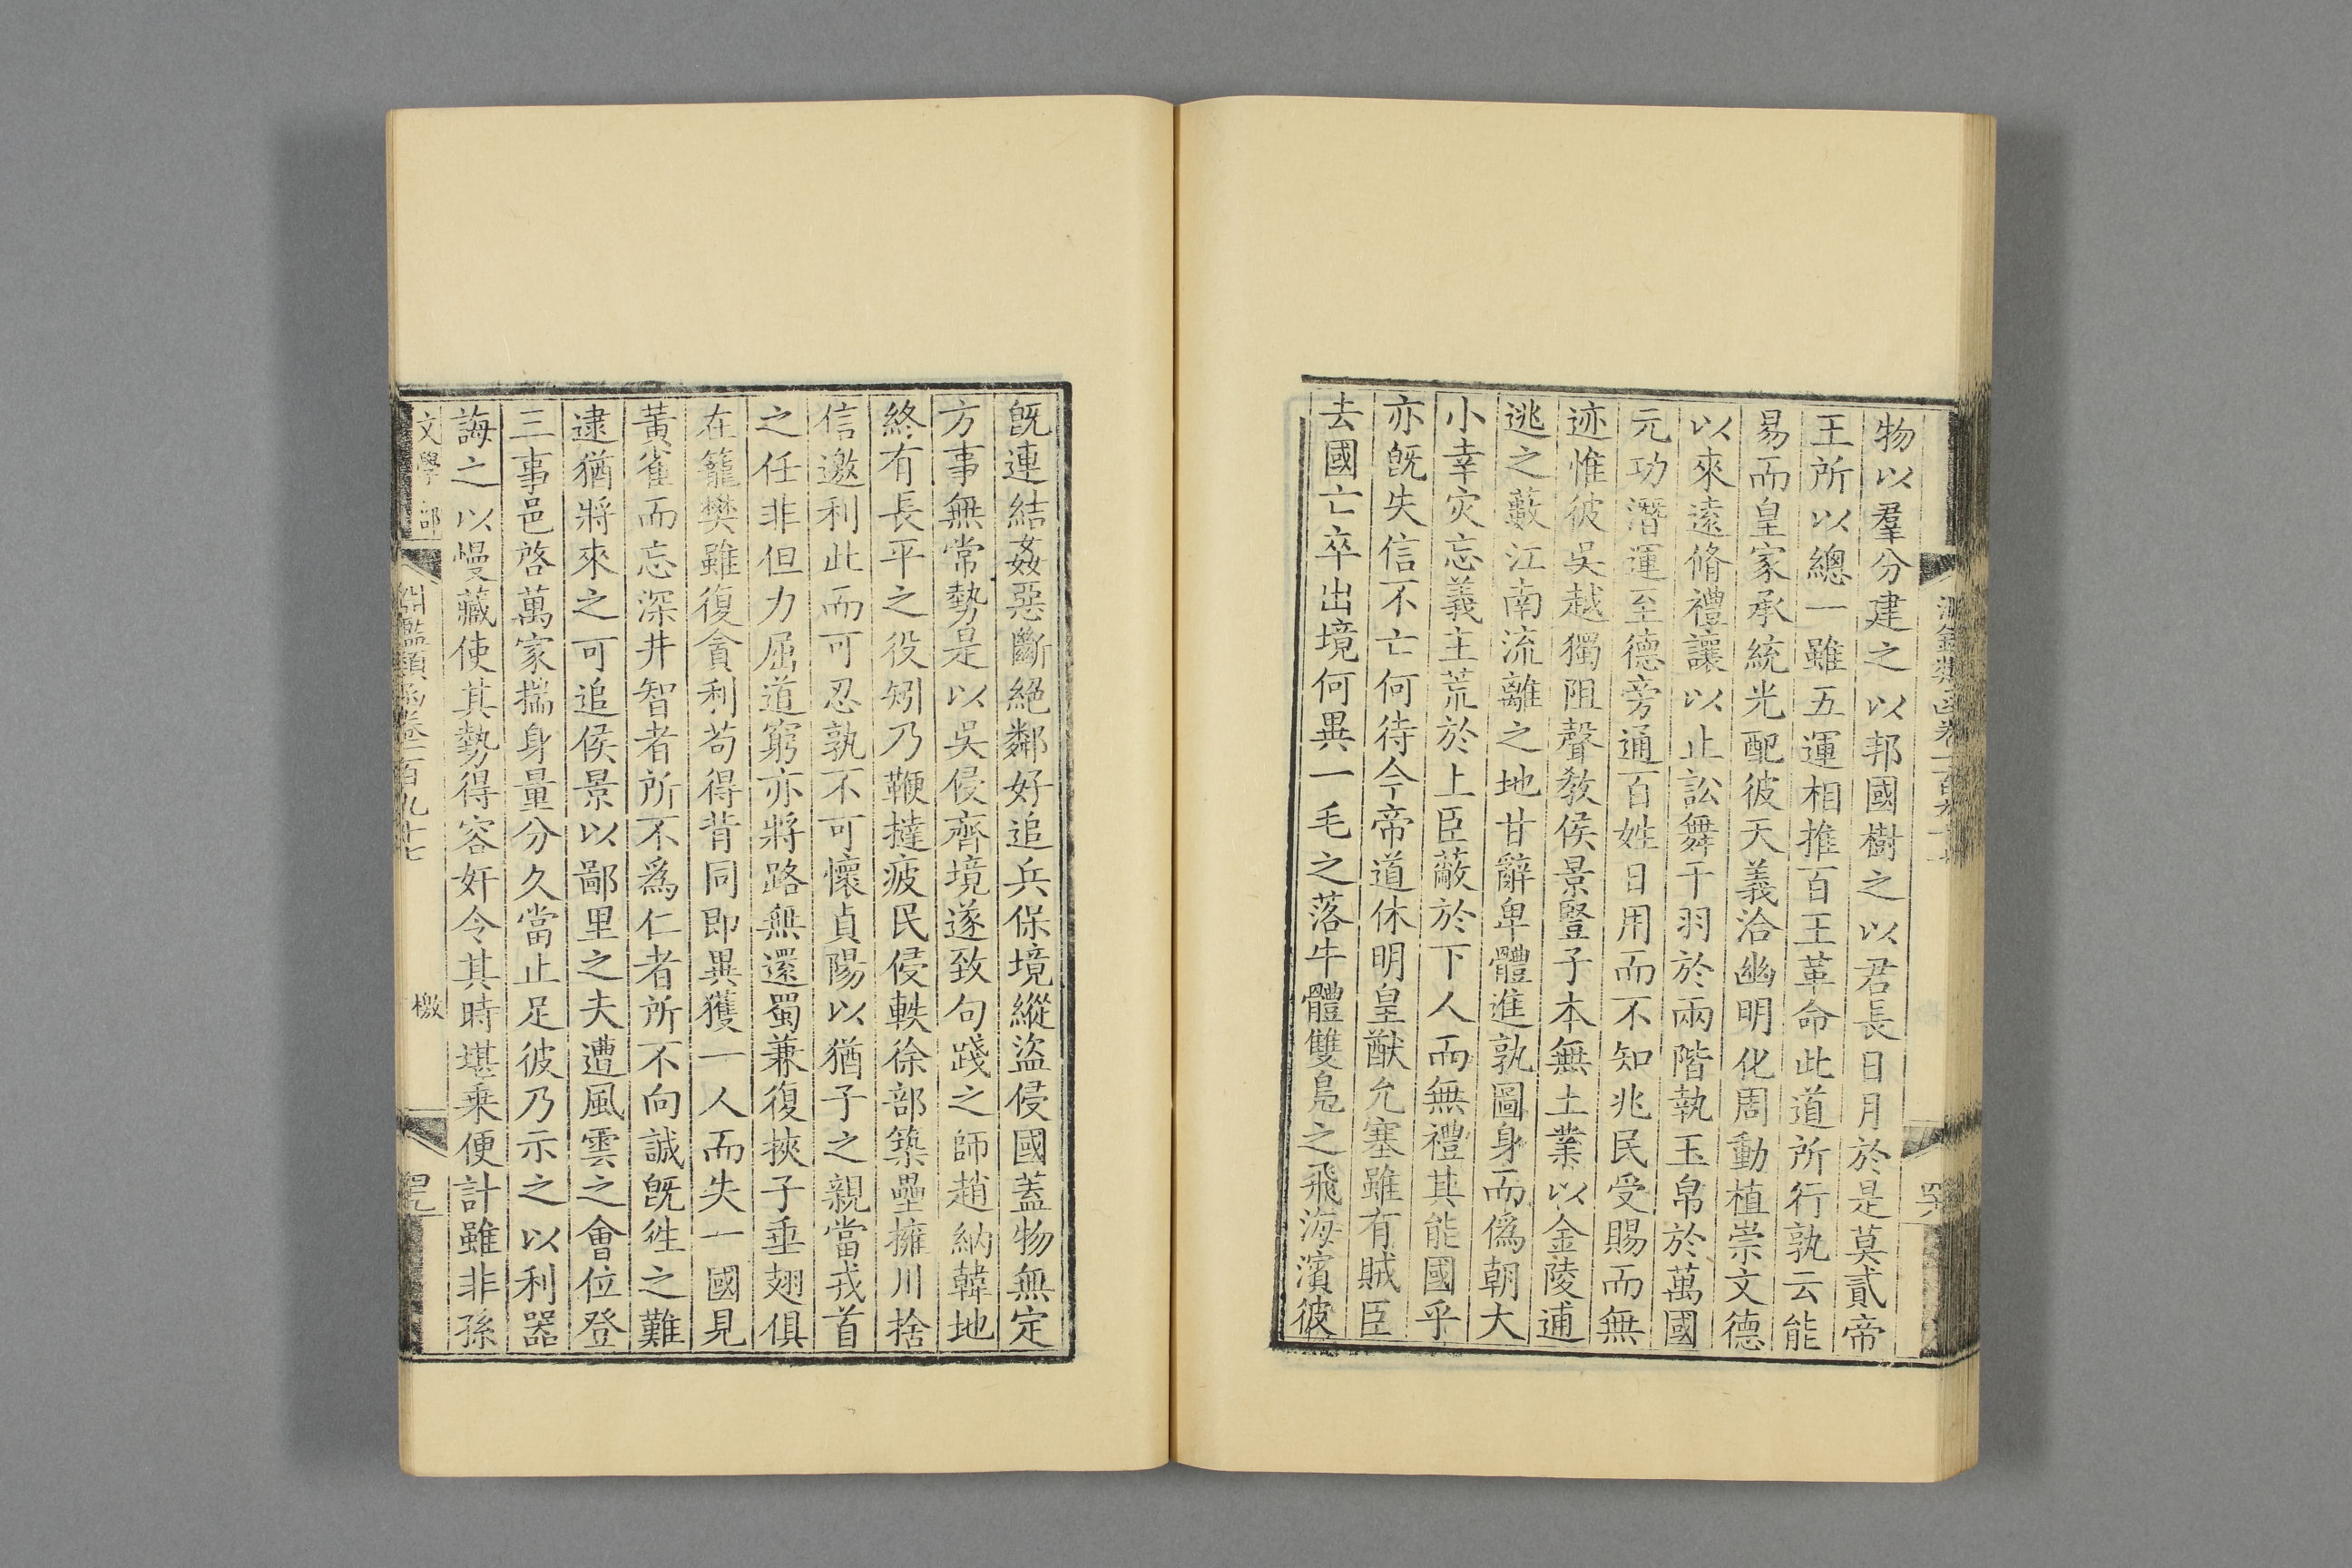 物以羣分建之以邦國樹之以君長日月於是莫貳帝
王所以總一雖五運相推百王革命此道所行孰云能
易而皇家承統光配彼天義洽幽明化周動植崇文德
以來遠脩禮讓以止訟舞干羽於兩階執玉帛於萬國
元功潛運至德旁通百姓日用而不知兆民受賜而無
迹惟彼吳越獨阻聲教侯景豎子本無土業以金陵逋
逃之藪江南流離之地甘辭卑體進孰圖身而僞朝大
小幸灾忘義主荒於上臣蔽於下人而無禮其能國乎
亦旣失信不亡何待今帝道休明皇猷允塞雖有賊臣
去國亡卒出境何異一毛之落牛體雙鳬之飛海濱彼
旣連結姦惡斷絕鄰好追兵保境縱盜侵國蓋物無定
方事無常勢是以吳侵齊境遂致句踐之師趙納韓地
終有長平之役矧乃鞭撻疲民侵軼徐部築壘擁川捨
信邀利此而可忍孰不可懷貞陽以猶子之親當戎首
之任非但力屈道窮亦將路無還蜀兼復挾子垂翅俱
在籠樊雖復貪利苟得背同即異獲一人而失一國見
黃雀而忘深井智者所不爲仁者所不向誠旣徃之難
逮猶將來之可追侯景以鄙里之夫遭風雲之會位登
三事邑啓萬家揣身量分久當止足彼乃示之以利器
誨之以慢藏使其勢得容奸令其時堪乗便計雖非孫
文學部 淵鑑類函卷一百九十七 檄